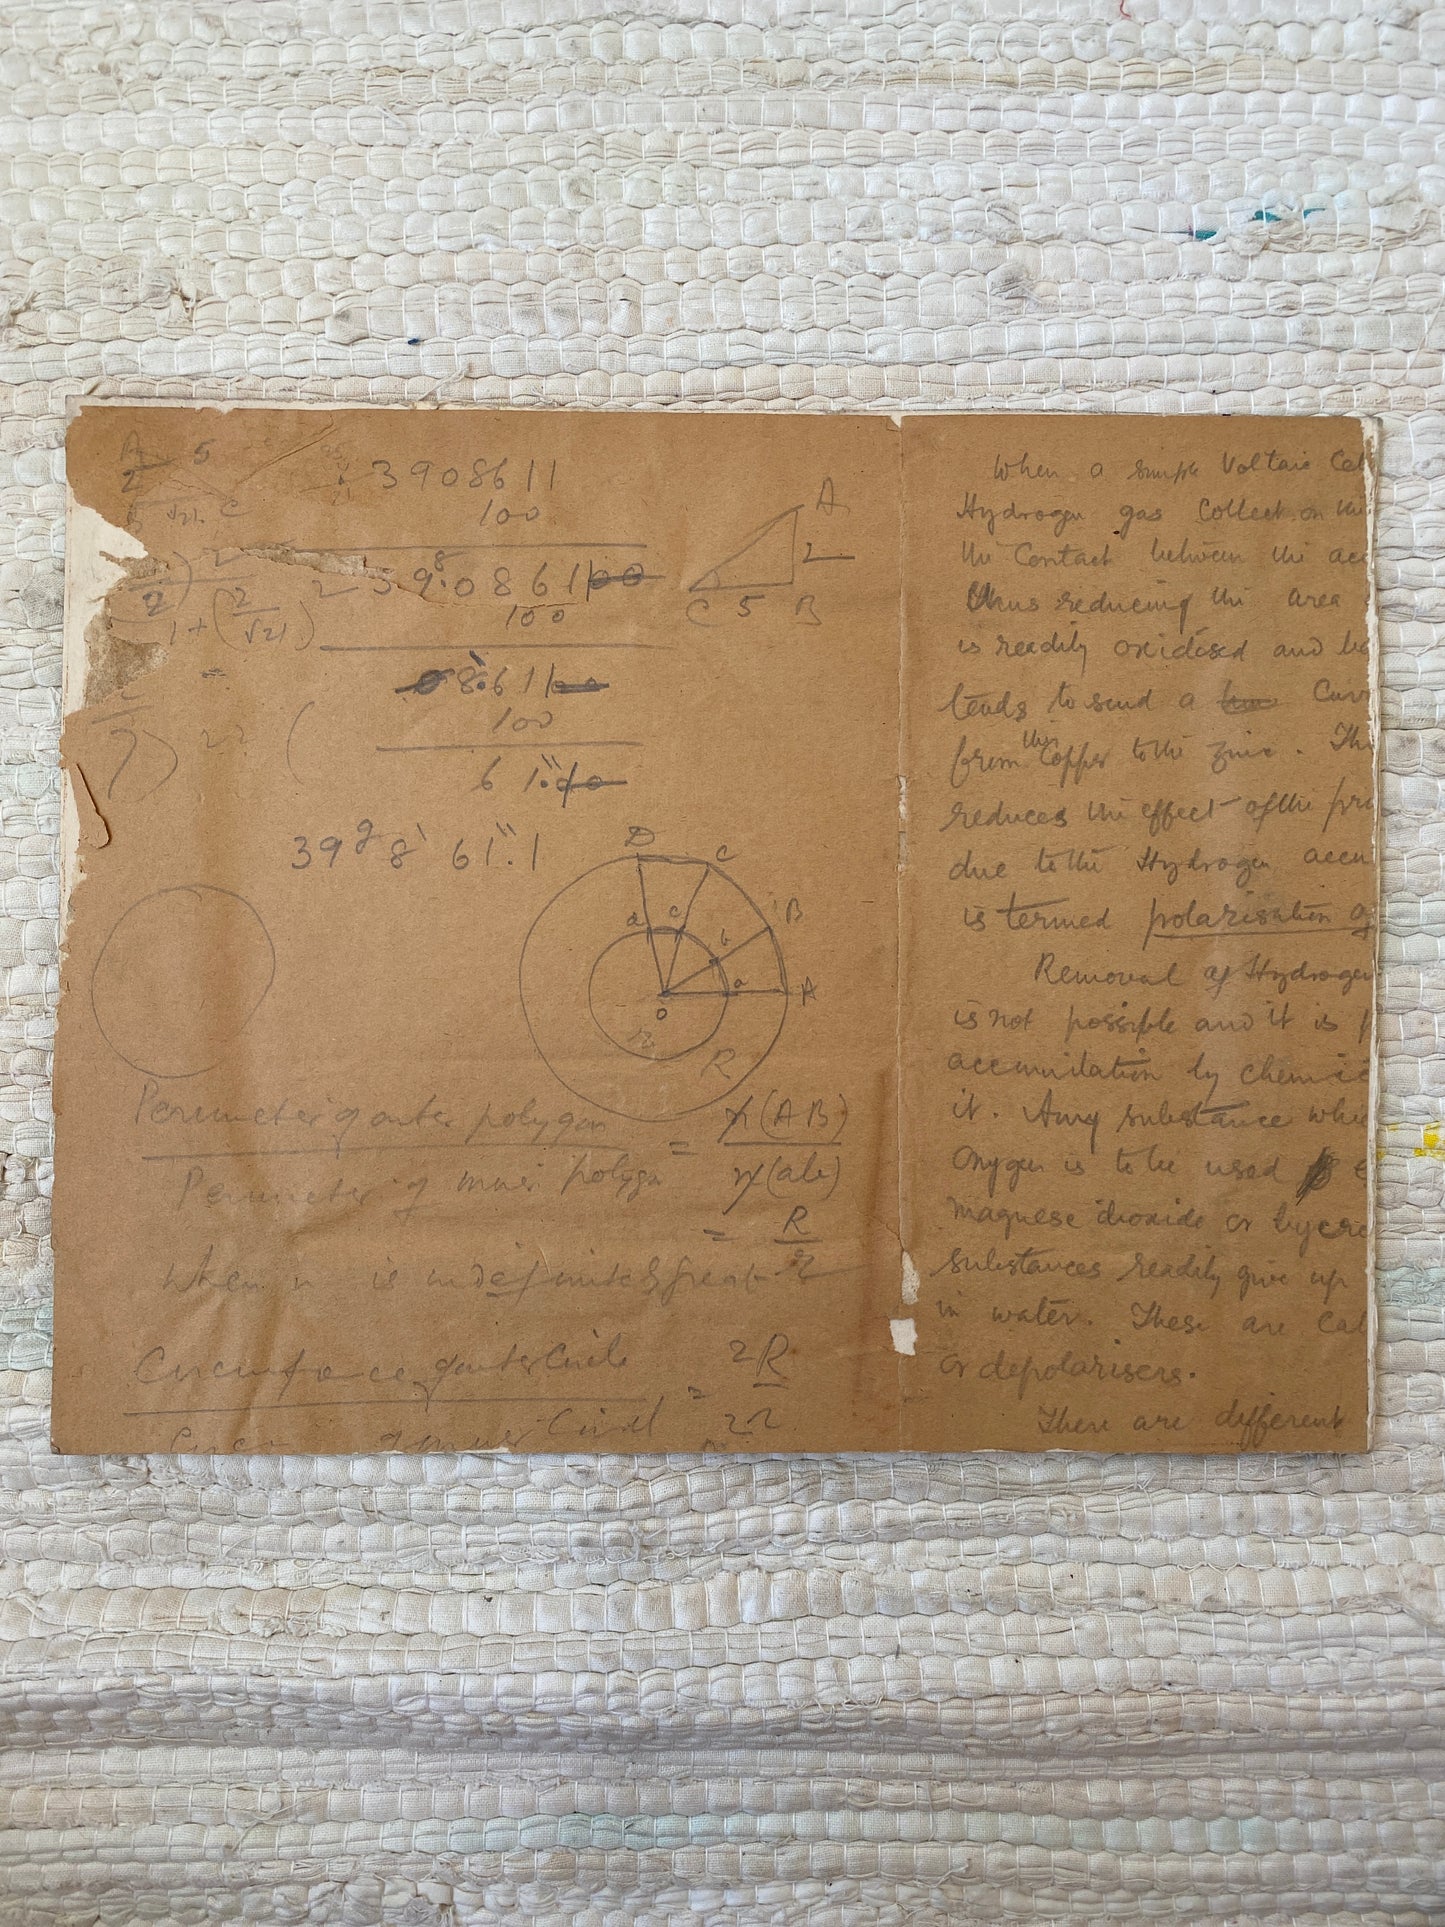 A
2
5
√21
C
3908611
100
2
1 + (2/√21)
39.086100
100
08.61100
100
61."10
39g 8' 61".1
A
2
C 5 B
D C
B
A
d c b a
o
r
R
Perimeter of outer polygon = n(AB)
Perimeter of inner polygon n(ab)
= R
r
When n is indefinitely great
Circumference of outer Circle = 2R
of inner Circle 2r
When a simple Voltaic Cel
Hydrogen gas Collect on the
the Contact between the acc
thus reducing the area
is readily oxidised and
tends to send a Curr
from this Copper to the zinc. Th
reduces the effect of the pri
due to the Hydrogen accu
is termed polarisation of
Removal of Hydrogen
is not possible and it is p
accumilation by chemic
it. Any substance whi
Oxygen is to be used
magnese dioxide or
substances readily give up
in water. These are Cal
or depolarisers.
There are different